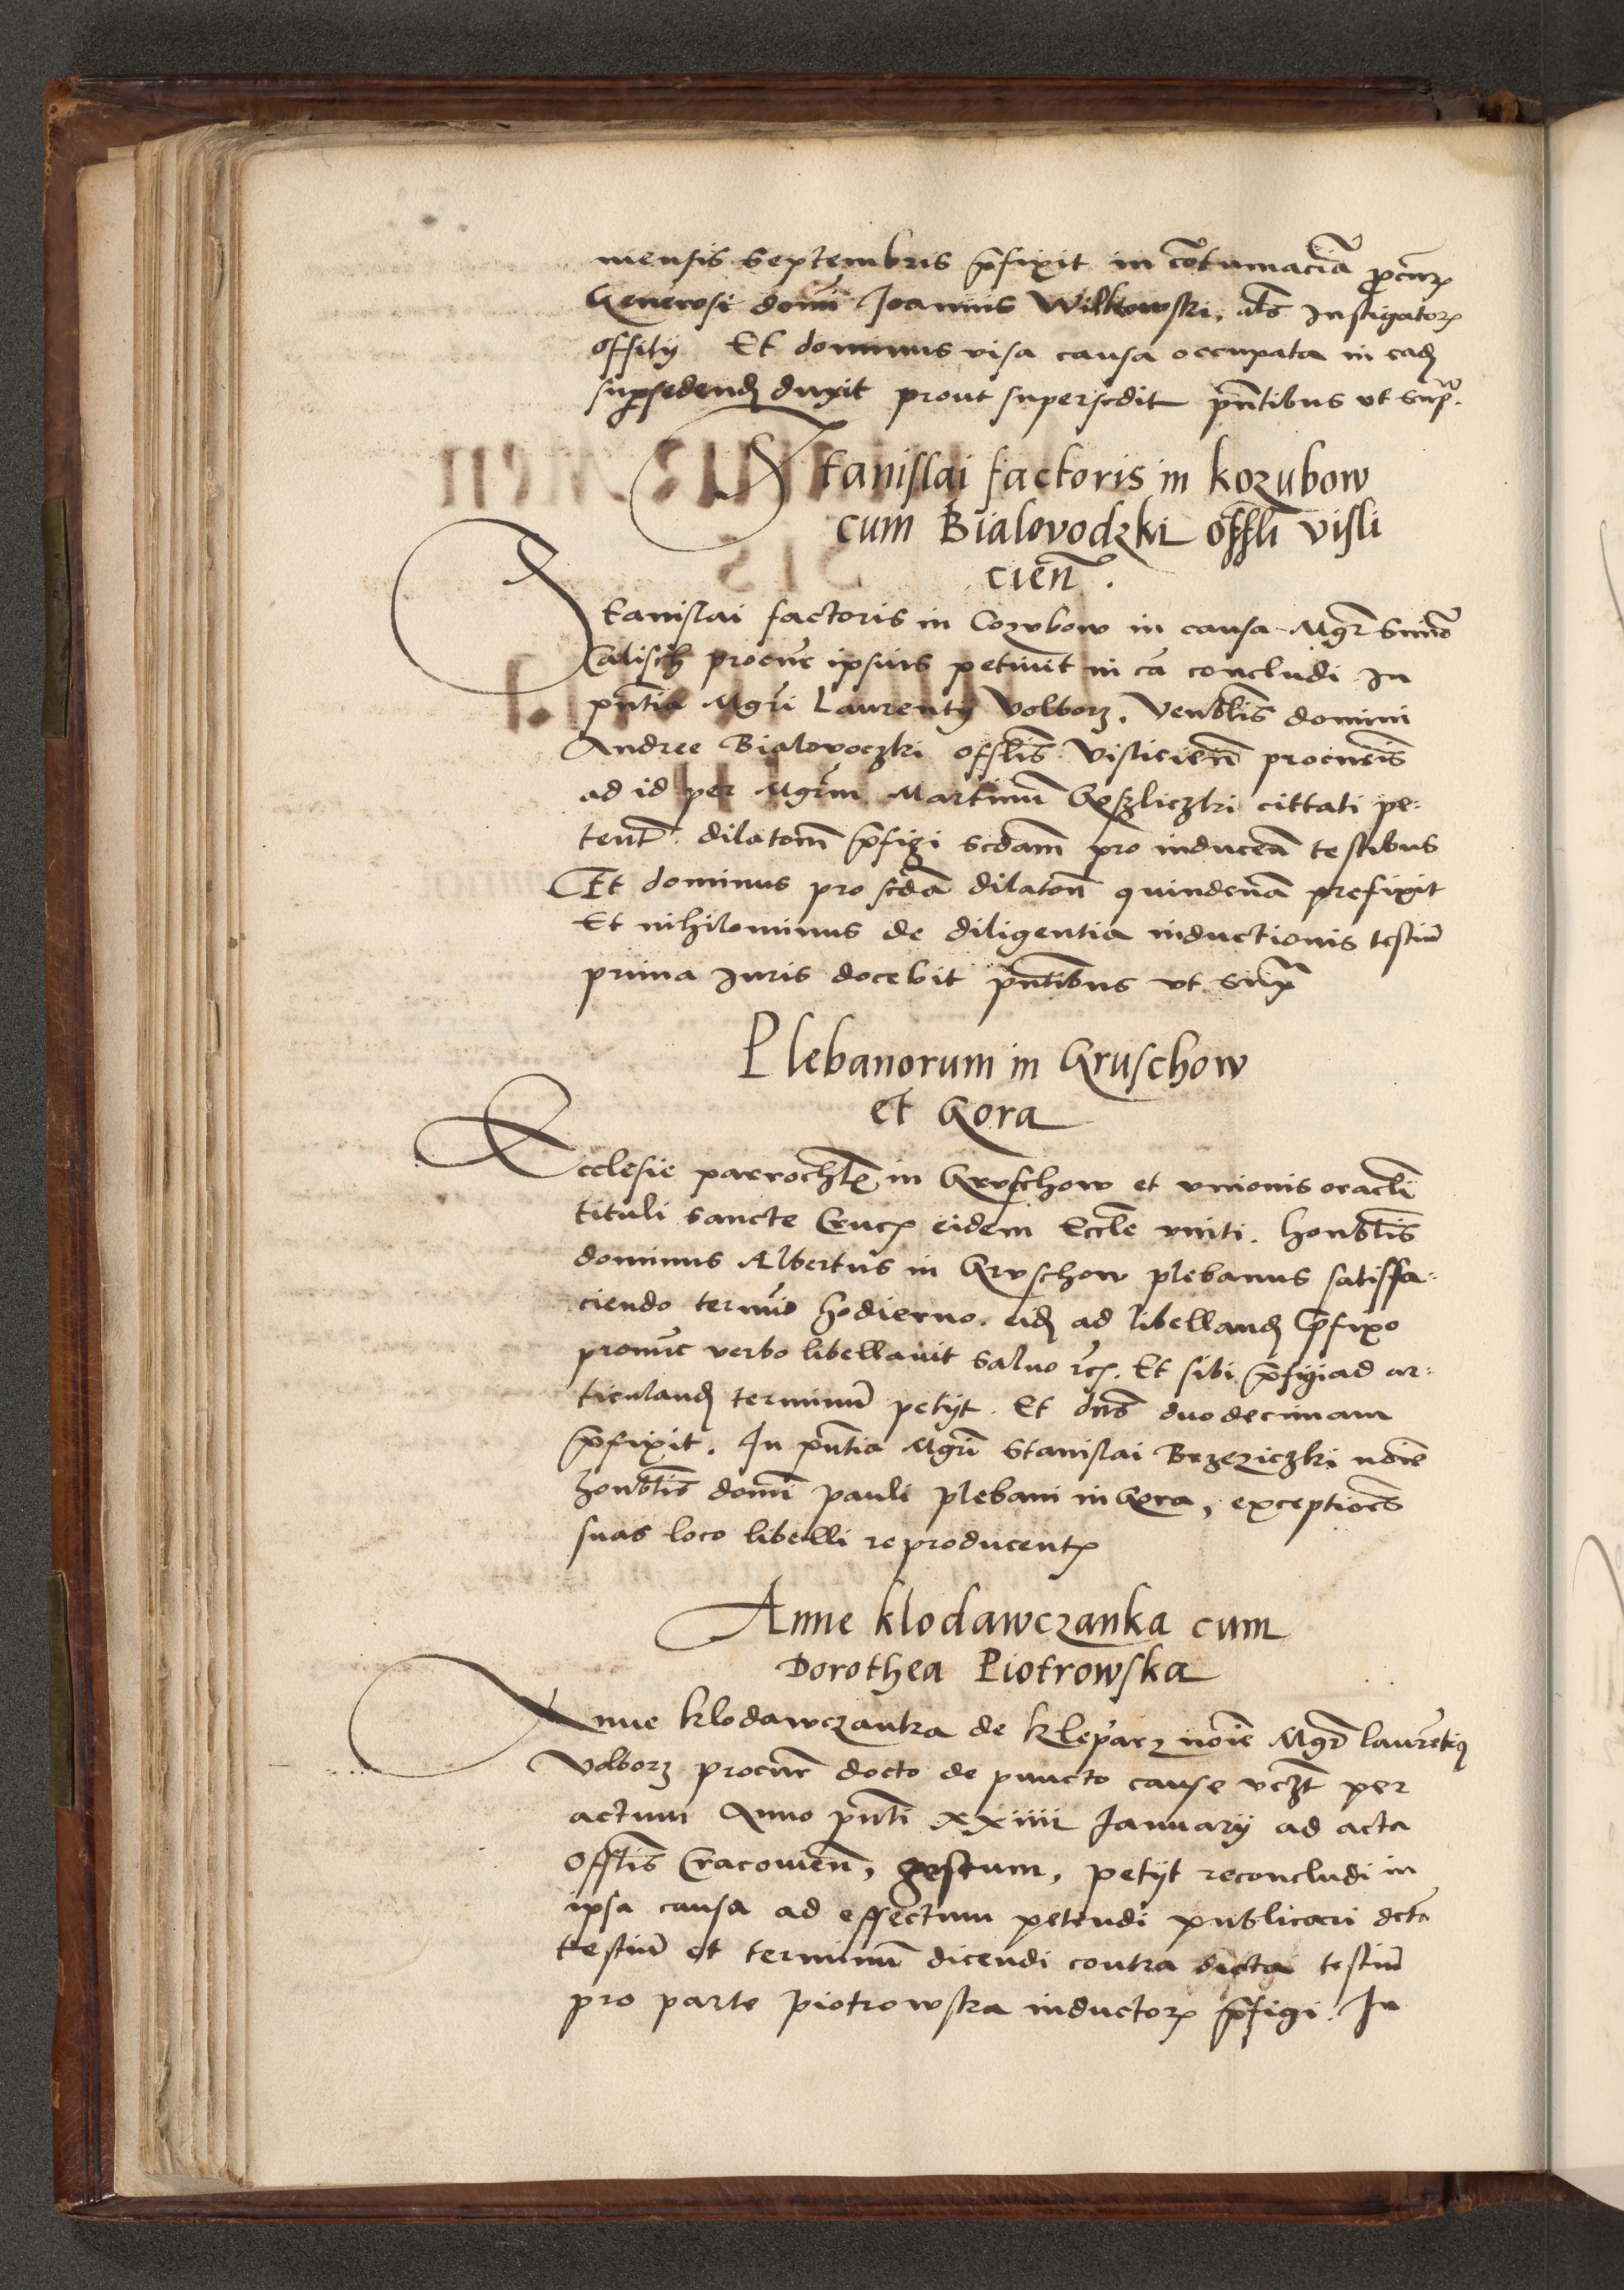 mensis Septembris p̄fixit in cōtumaciā ꝓcur̄
Generosi domi Joannis Wilkowski, als Instigatorꝭ
offitij Et dominus visa causa occupata in eadꝫ
sup̱sedendꝫ duxit prout supersedit pn̄tibus vt sup̄.
Stanislai factoris in Kozubow
cum Bialovodzki offli visli
cien̄.
Stanislai factoris in Cozvbow in causa Mgr̄
Calisch procur̄ ipsius petiuit in cā concludi In
pn̄tia Mgri Laurentij Volborz, Venblis domini
Andree Bialovoczki offlis Visliciен̄ procur̄is
ad id per Mgrm Martinū Goszliczki cittati pe:
tent̄ dilatom̄ p̄figi scdam̄ pro inducen̄ testibus
Et dominus pro scdā dilaton̄ quindenā prefixit
Et nihilominus de diligentia inductionis testiū
prima Juris docebit pn̄tibus vt sup̄
Plebanorum in Gruschow
et Gora
Ecclesie parrochlꝭ in Grvschow et vnionis oracli
tituli sancte Crucꝭ eidem Eccle vniti. honblis
dominus Albertus in Grvschow plebanus satisfa:
ciendo termīo hodierno. eidꝫ ad libellandꝫ p̄fixo
pronūc verbo libellauit saluo rcꝭ. Et sibi p̄figi ad ar:
ticulandꝫ terminū petijt. Et dn̄s duodecimam
p̄fixit. In pn̄tia Mgri Stanislai Brzeziczki noīe
honblis domi pauli plebani in Gora, exceptioēs
suas loco libelli reproducentꝭ
Anne klodawczanka cum
Dorothea Piotrowska
Anne klodawczanka de Kleparz noīe Mgr̄ Laurētiꝰ
Volborz procur̄ docto de puncto cause vcꝫt per
actum Anno pn̄ti xxiiii Januarij ad acta
Offlis Cracouien̄, gestum, petijt reconcludi in
ipsa causa ad effectum petendi publicari dcta
testiū et terminū dicendi contra dicta testiū
pro parte Piotrowska inductorꝭ p̄figi. In